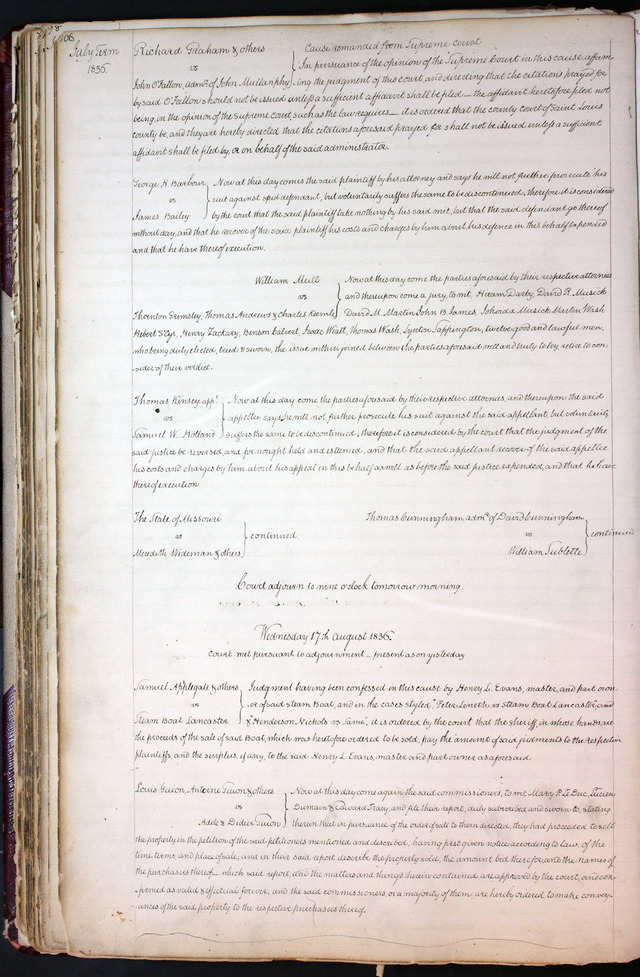 106
July Term
1836.
Richard Graham & others
vs
John O'Fallon, admr. of John Mullanphy
Cause remanded from Supreme court
In pursuance of the opinion of the Supreme Court in this cause, affirm-
ing the judgment of this court and directing that the citations prayed for
by said O'Fallon should not be issued unless a sufficient affidavit shall be filed — the affidavit heretofore filed not
being, in the opinion of the supreme court, such as the law requires — it is ordered that the county court of Saint Louis
county be, and they are hereby directed that the citations aforesaid prayed for shall not be issued unless a sufficient
affidavit shall be filed by, or on behalf of the said administrator.
George H. Barbour
vs
James Bailey
Now at this day comes the said plaintiff by his attorney and says he will not further prosecute his
suit against said defendant, but voluntarily suffers the same to be discontinued, therefore it is considered
by the court that the said plaintiff take nothing by his said writ, but that the said defendant go thereof
without day, and that he recover of the said plaintiff his costs and charges by him about his defence in this behalf expended
and that he have thereof execution.
William Mull
vs
Thornton Grimsley, Thomas Andrews & Charles Keemle
Now at this day come the parties aforesaid by their respective attornies
and thereupon come a jury, to wit, Hiram Darby, David R. Musick
David M. Martin, John B. James, Musick Martin Wash
Henry Zackary, Benson Calvert, Isaac Watt, Thomas Wash, Lynton Tappington, twelve good and lawful men,
who being duly elected, tried & sworn, the issue within joined between the parties aforesaid well and truly to try, retire to con-
sider of their verdict.
Thomas Kinsey, appt.
vs
Samuel W. Holland
Now at this day come the parties aforesaid by their respective attornies, and thereupon the said
appellee says, he will not further prosecute his suit against the said appellant, but voluntarily
suffers the same to be discontinued, therefore it is considered by the court that the judgment of the
said justice be reversed, and for nought held and esteemed, and that the said appellant recover of the said appellee
his costs and charges by him about his appeal in this behalf as well as before the said justice expended, and that he have
thereof execution
The State of Missouri
vs
Meredith Wideman & others
continued
Thomas Cunningham admr. of David Cunningham
vs
William Sublette
continued
Court adjourn to nine o'clock tomorrow morning.
Wednesday 17th August 1836.
Court met pursuant to adjournment — present as on yesterday
Samuel Applegate & others
vs
Steam Boat Lancaster
Judgment having been confessed in this cause by Henry L. Evans, master, and part own-
er of said steam Boat, and in the cases styled, Peter vs Steam Boat Lancaster, and
Henderson Nichols vs Same, it is ordered by the court that the sheriff, in whose hands are
the proceeds of the sale of said Boat, which was heretofore ordered to be sold, pay the amount of said judgments to the respective
plaintiffs, and the surplus, if any, to the said Henry L. Evans, master and part owner as aforesaid.
Louis Guion, Antoine Guion & others
vs
Adele & Didier Guion
Now at this day come again the said commissioners, to wit Mary P. Le Duc, Lucien
Dumain & Edward Tracy, and file their report, duly subscribed and sworn to, stating
therein that in pursuance of the order of sale to them directed, they had proceeded to sell
the property in the petition of the said petitioners mentioned and described, having first given notice according to law, of the
time, terms, and place of sale, and in their said report describe the property sold, the amount bid therefor and the names of
the purchasers thereof — which said report, and the matters and things therein contained are approved by the court, and con-
firmed as valid & effectual forever, and the said commissioners or a majority of them, are hereby ordered to make convey-
ances of the said property to the respective purchasers thereof.